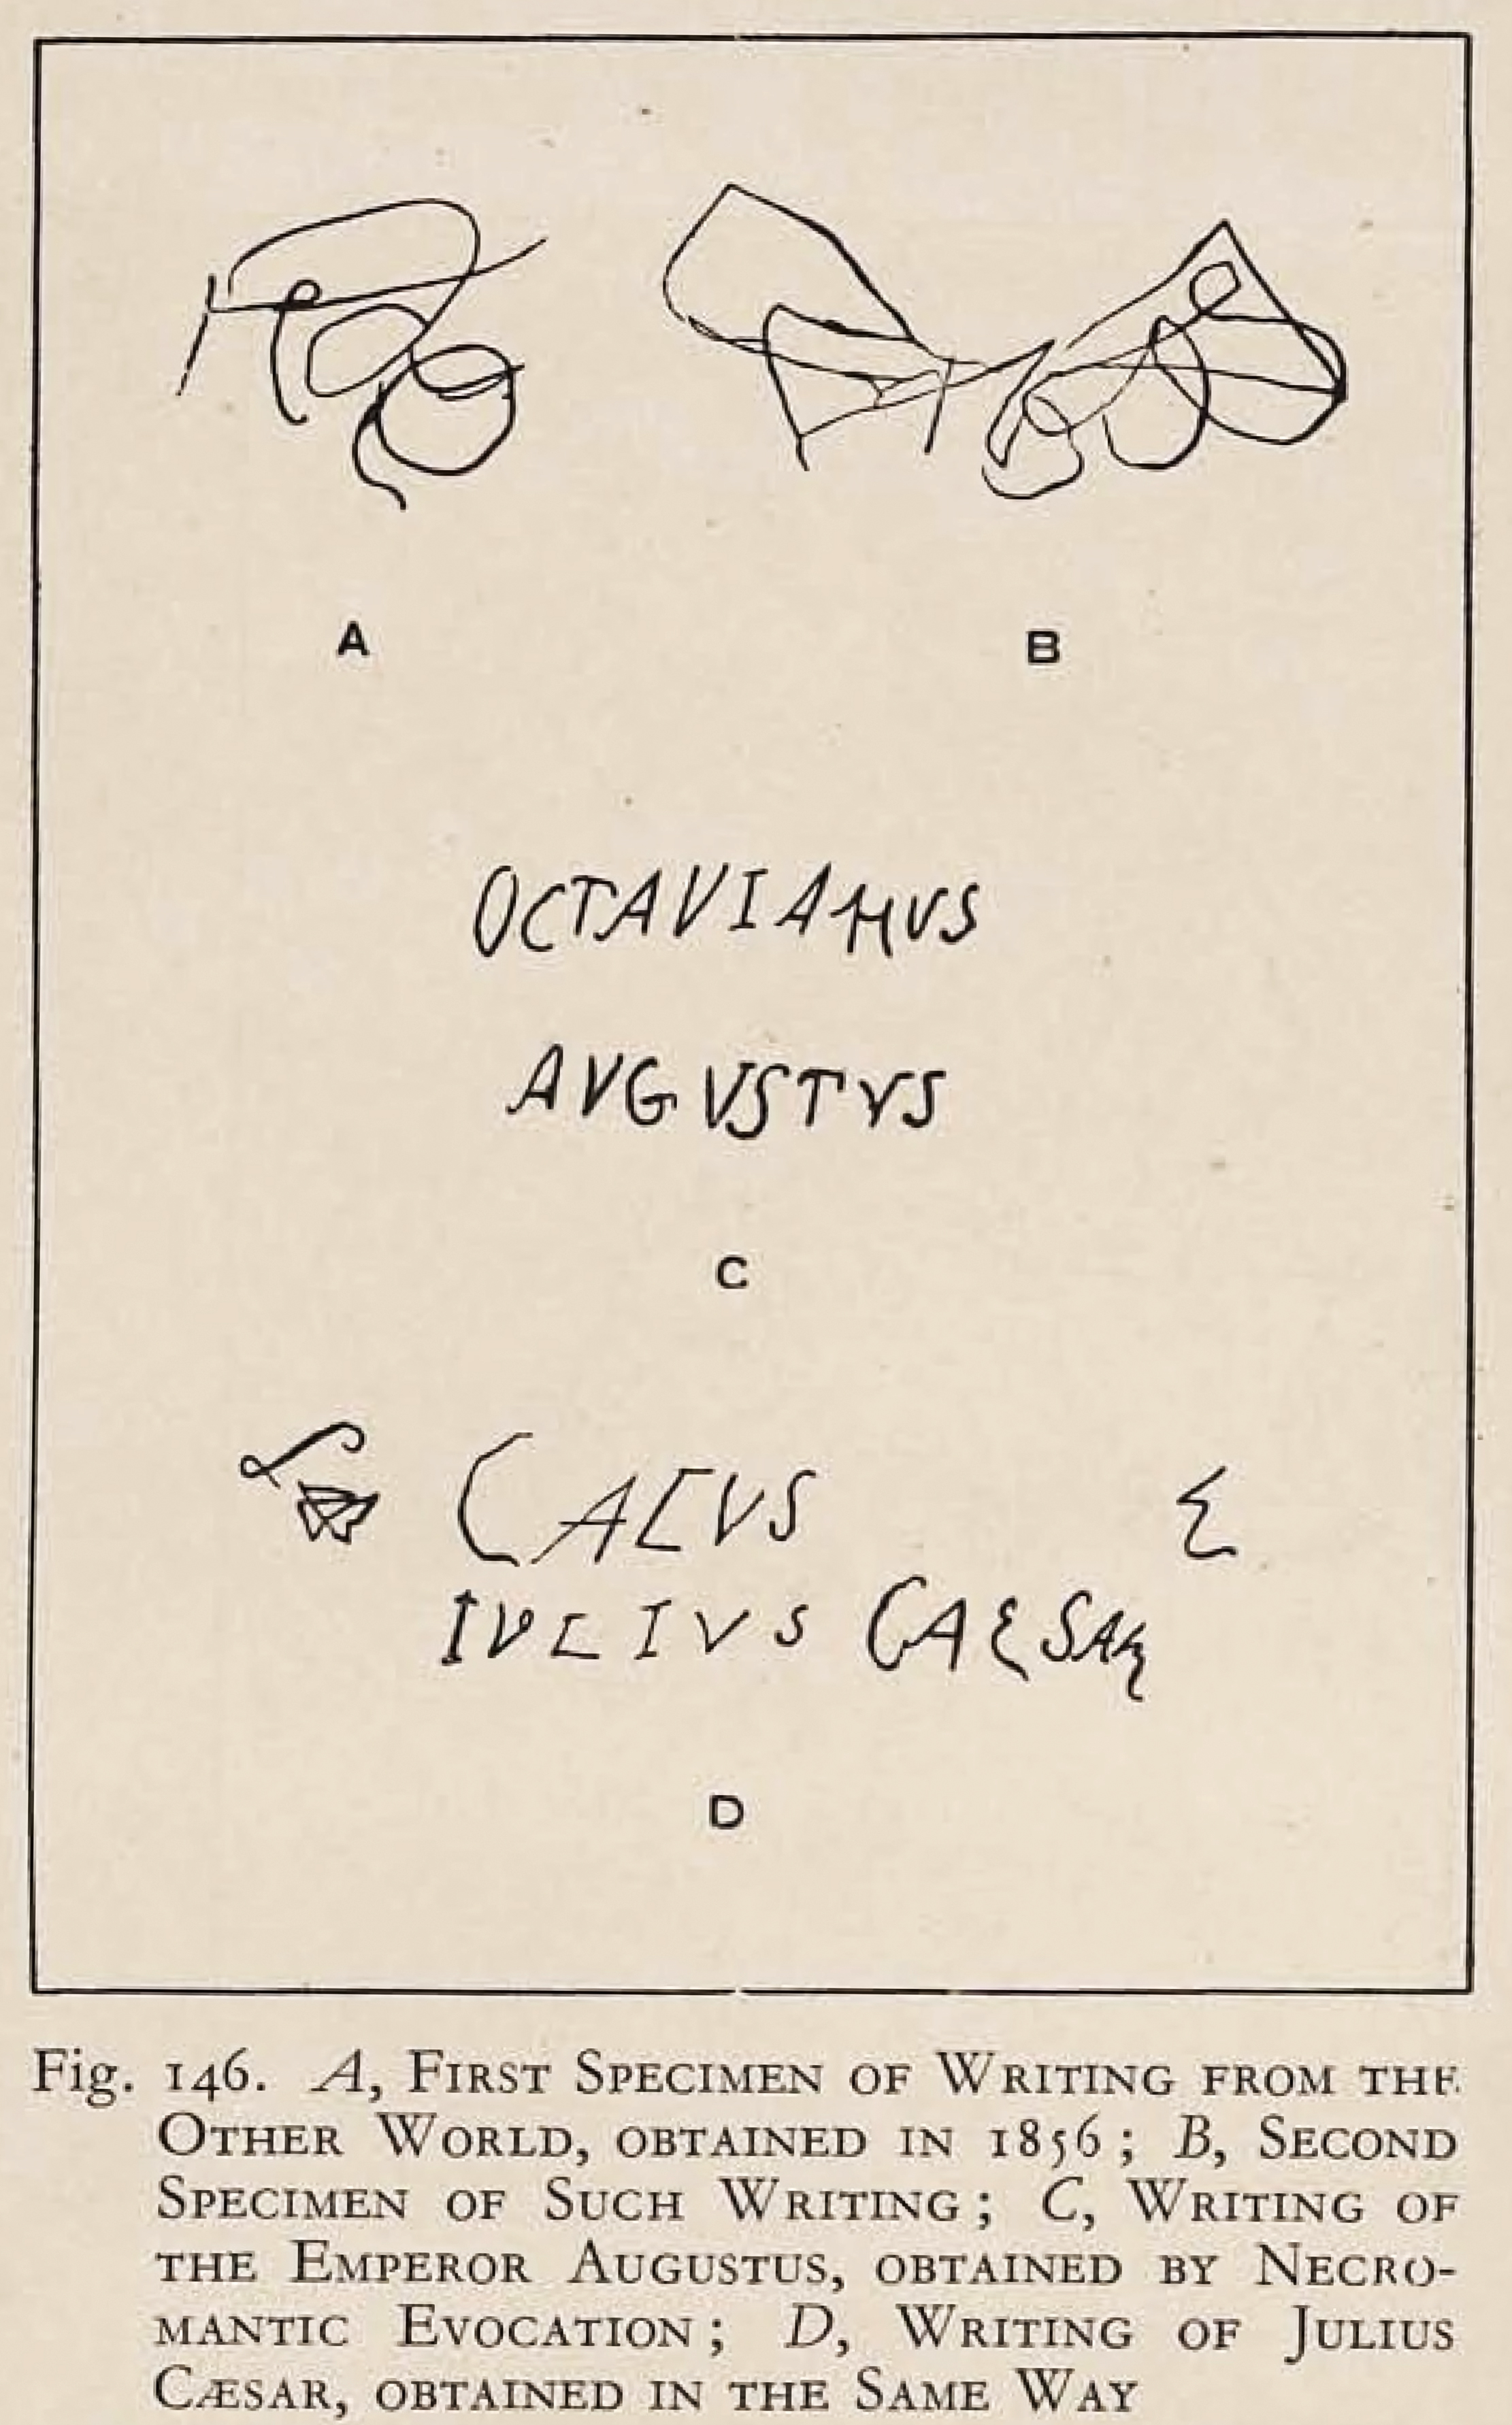 A
B
OCTAVIANVS
AVGVSTVS
C
IVLIVS CAESAR
D
Fig. 146. A, First Specimen of Writing from the
Other World, obtained in 1856; B, Second
Specimen of Such Writing; C, Writing of
the Emperor Augustus, obtained by Necro-
mantic Evocation; D, Writing of Julius
Cæsar, obtained in the Same Way